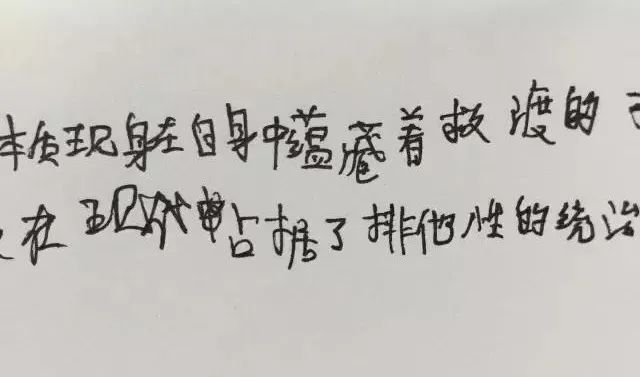 本质现身在自身中蕴藏着救渡的
在现代中占据了排他性的统治